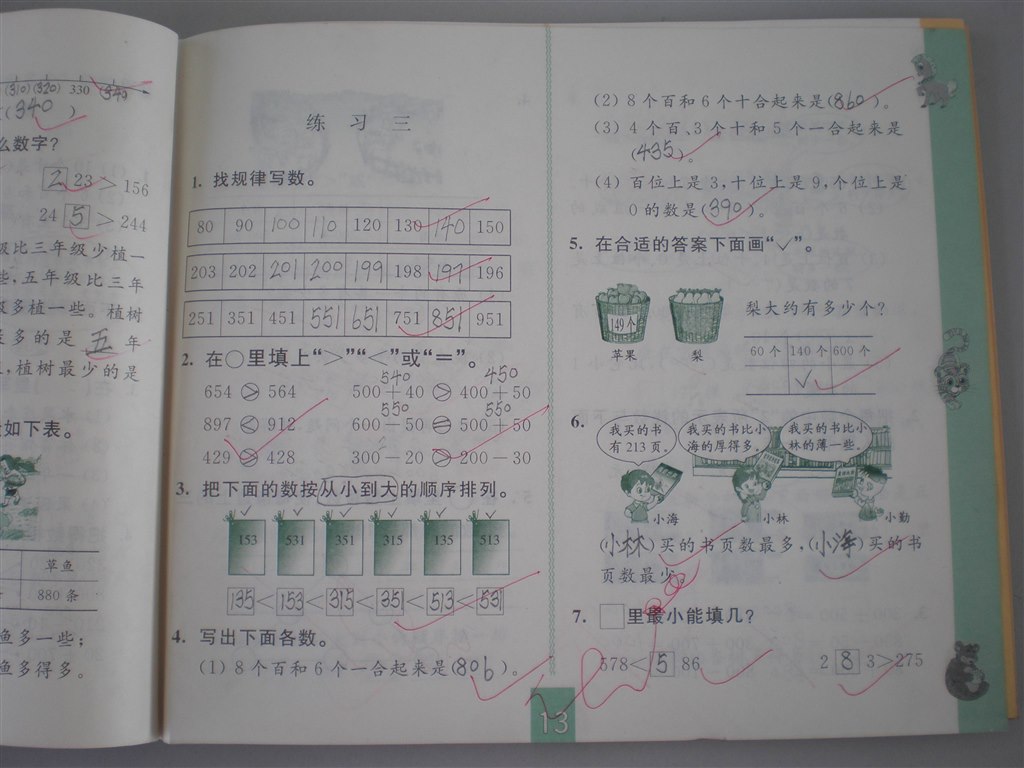 (310)(320) 330 340
(340)
么数字?
2 23 > 156
24 5 > 244
级比三年级少植一
些,五年级比三年
级多植一些。植树
最多的是 五 年
,植树最少的是
如下表。
草鱼
880 条
鱼多一些;
鱼多得多。
练 习 三
1. 找规律写数。
80 90 100 110 120 130 140 150
203 202 201 200 199 198 197 196
251 351 451 551 651 751 851 951
2. 在○里填上“>”“<”或“=”。
540 450
654 > 564 500+40 > 400+50
550 550
897 < 912 600-50 = 500+50
429 > 428 300-20 > 200-30
3. 把下面的数按从小到大的顺序排列。
153 531 351 315 135 513
135 < 153 < 315 < 351 < 513 < 531
4. 写出下面各数。
(1) 8个百和6个一合起来是(806)。
(2) 8个百和6个十合起来是(860)。
(3) 4个百、3个十和5个一合起来是
(435)。
(4) 百位上是3,十位上是9,个位上是
0的数是(390)。
5. 在合适的答案下面画“✓”。
149个
苹果 梨
梨大约有多少个?
60个 140个 600个
✓
6. 我买的书有213页。
我买的书比小海的厚得多。
我买的书比小林的薄一些。
小海 小林 小勤
(小林)买的书页数最多,(小海)买的书
页数最少。
7. □里最小能填几?
578 < 5 86 2 8 3 > 275
13